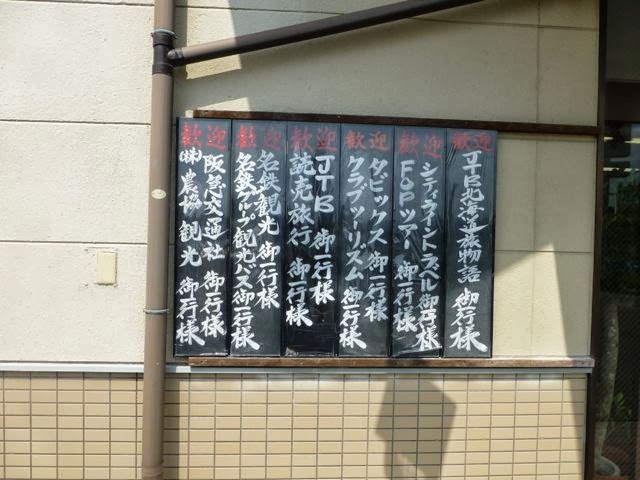 歓迎
JTB北海道旅物語 御一行様
歓迎
シティライントラベル御一行様
FOPツアー 御一行様
歓迎
タビックス 御一行様
クラブツーリズム 御一行様
歓迎
JTB 御一行様
読売旅行 御一行様
歓迎
名鉄観光 御一行様
名鉄グループ観光バス 御一行様
歓迎
阪急交通社 御一行様
(株)農協観光 御一行様